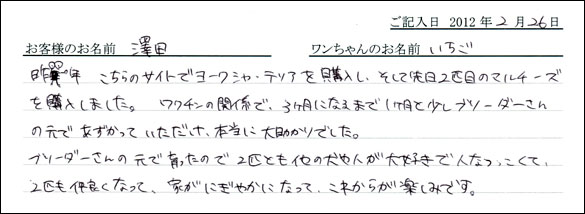 ご記入日 2012年2月26日
お客様のお名前 澤田 ワンちゃんのお名前 いちご
昨年 こちらのサイトでヨークシャ・テリアを購入し、そして先日2匹目のマルチーズ
を購入しました。 ワクチンの関係で、3ヶ月になるまで1ヶ月と少しブリーダーさん
の元であずかっていただけ、本当に大助かりでした。
ブリーダーさんの元で育ったので2匹とも他の犬や人が大好きで人なつっこくて、
2匹も仲良くなって、家がにぎやかになって、これからが楽しみです。